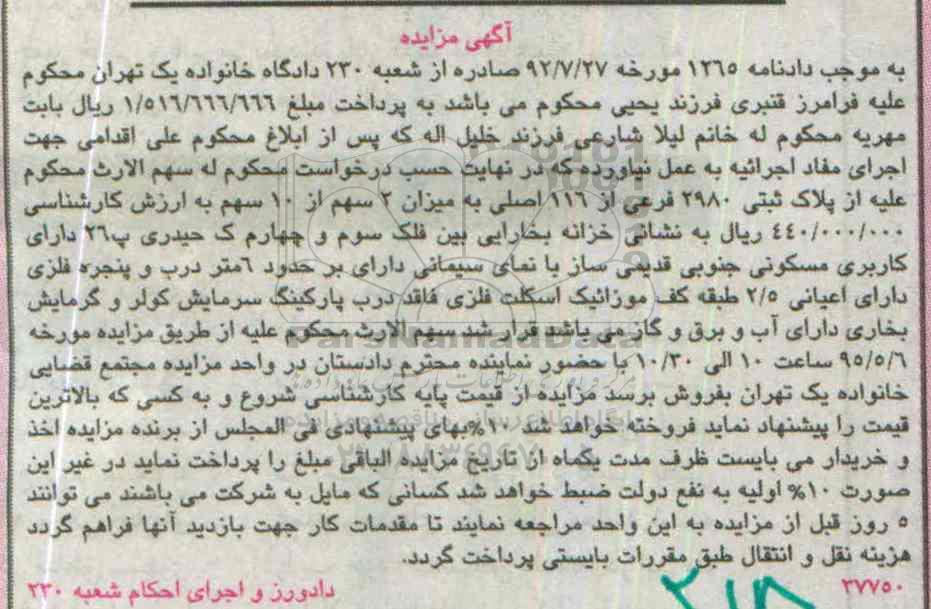 آگهی مزایده
به موجب دادنامه ۱۲۶۵ مورخه ۹۲/۷/۲۷ صادره از شعبه ۲۳۰ دادگاه خانواده یک تهران محکوم
علیه فرامرز قنبری فرزند یحیی محکوم می باشد به پرداخت مبلغ ۱/۵۱۶/۶۶۶/۶۶۶ ریال بابت
مهریه محکوم له خانم لیلا شارعی فرزند خلیل اله که پس از ابلاغ محکوم علی اقدامی جهت
اجرای مفاد اجرائیه به عمل نیاورده که در نهایت حسب درخواست محکوم له سهم الارث محکوم
علیه از پلاک ثبتی ۲۹۸۰ فرعی از ۱۱۶ اصلی به میزان ۲ سهم از ۱۰ سهم به ارزش کارشناسی
۴۴۰/۰۰۰/۰۰۰ ریال به نشانی خزانه بخارایی بین فلک سوم و چهارم ک حیدری پ۲۶ دارای
کاربری مسکونی جنوبی قدیمی ساز با نمای سیمانی دارای بر حدود ۶متر درب و پنجره فلزی
دارای اعیانی ۲/۵ طبقه کف موزائیک اسکلت فلزی فاقد درب پارکینگ سرمایش کولر و گرمایش
بخاری دارای آب و برق و گاز می باشد قرار شد سهم الارث محکوم علیه از طریق مزایده مورخه
۹۵/۵/۶ ساعت ۱۰ الی ۱۰/۳۰ با حضور نماینده محترم دادستان در واحد مزایده مجتمع قضایی
خانواده یک تهران بفروش برسد مزایده از قیمت پایه کارشناسی شروع و به کسی که بالاترین
قیمت را پیشنهاد نماید فروخته خواهد شد ۱۰%بهای پیشنهادی فی المجلس از برنده مزایده اخذ
و خریدار می بایست ظرف مدت یکماه از تاریخ مزایده الباقی مبلغ را پرداخت نماید در غیر این
صورت ۱۰% اولیه به نفع دولت ضبط خواهد شد کسانی که مایل به شرکت می باشند می توانند
۵ روز قبل از مزایده به این واحد مراجعه نمایند تا مقدمات کار جهت بازدید آنها فراهم گردد
هزینه نقل و انتقال طبق مقررات بایستی پرداخت گردد.
۲۷۷۵۰ دادورز و اجرای احکام شعبه ۲۳۰